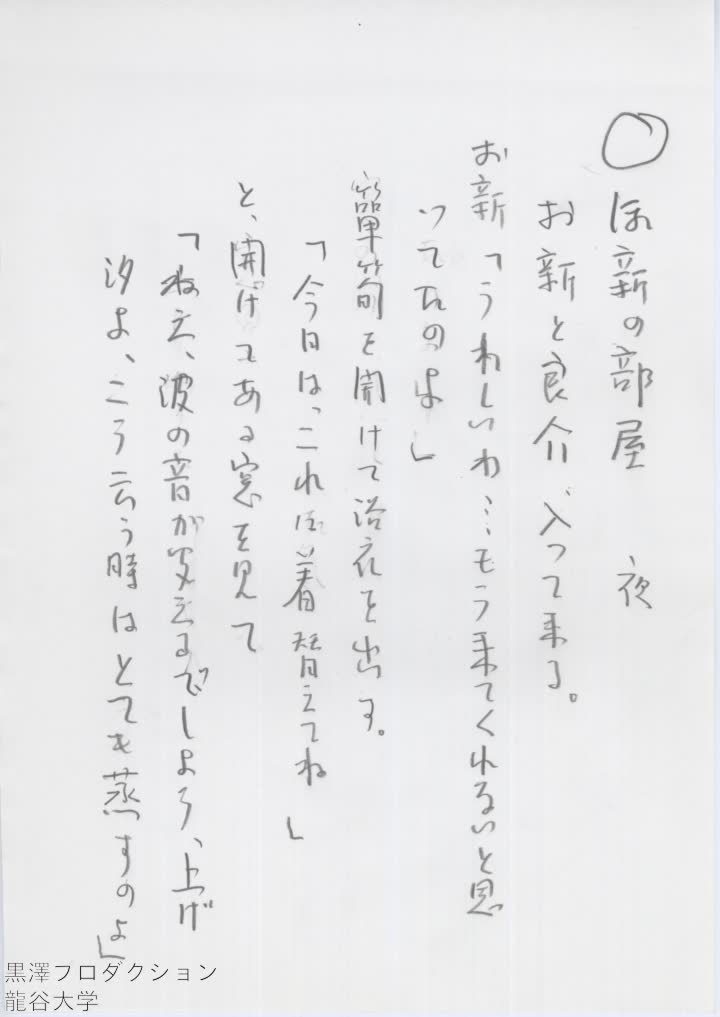 ○ お新の部屋 夜
お新と良介、入って来る。
お新「うれしいわ…もう来てくれないと思
ってたのよ」
箪笥を開けて浴衣を出す。
「今日は、これに着替えてね」
と、開けてある窓を見て
「ねえ、波の音が変えるでしよう、上げ
汐よ、こう云う時はとても蒸すのよ」
黒澤プロダクション
龍谷大学